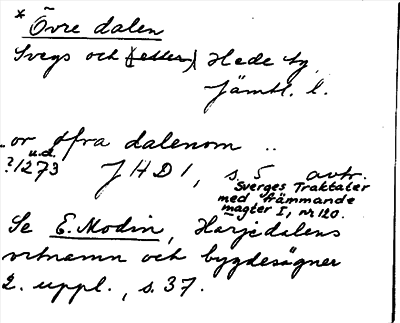 * Övre dalen
Svegs och Hede tg
Jämtl. l.
.. or øfra dalenom ..
u.d.
?1273 JHD 1, s. 5 avtr.
Sverges Traktater
med främmande
magter I, nr 120.
Se E. Modin, Härjedalens
ortnamn och bygdesägner
2. uppl., s. 37.